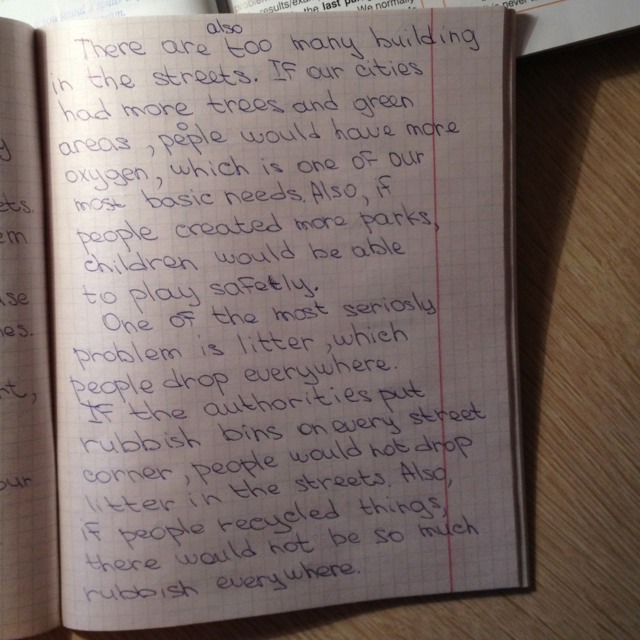 results/exa
the last par
We normally
is never
also
There are too many building
in the streets. If our cities
had more trees and green
areas, people would have more
oxygen, which is one of our
most basic needs. Also, if
people created more parks,
children would be able
to play safetly.
One of the most seriosly
problem is litter, which
people drop everywhere.
If the authorities put
rubbish bins on every street
corner, people would not drop
litter in the streets. Also,
if people recycled things,
there would not be so much
rubbish everywhere.